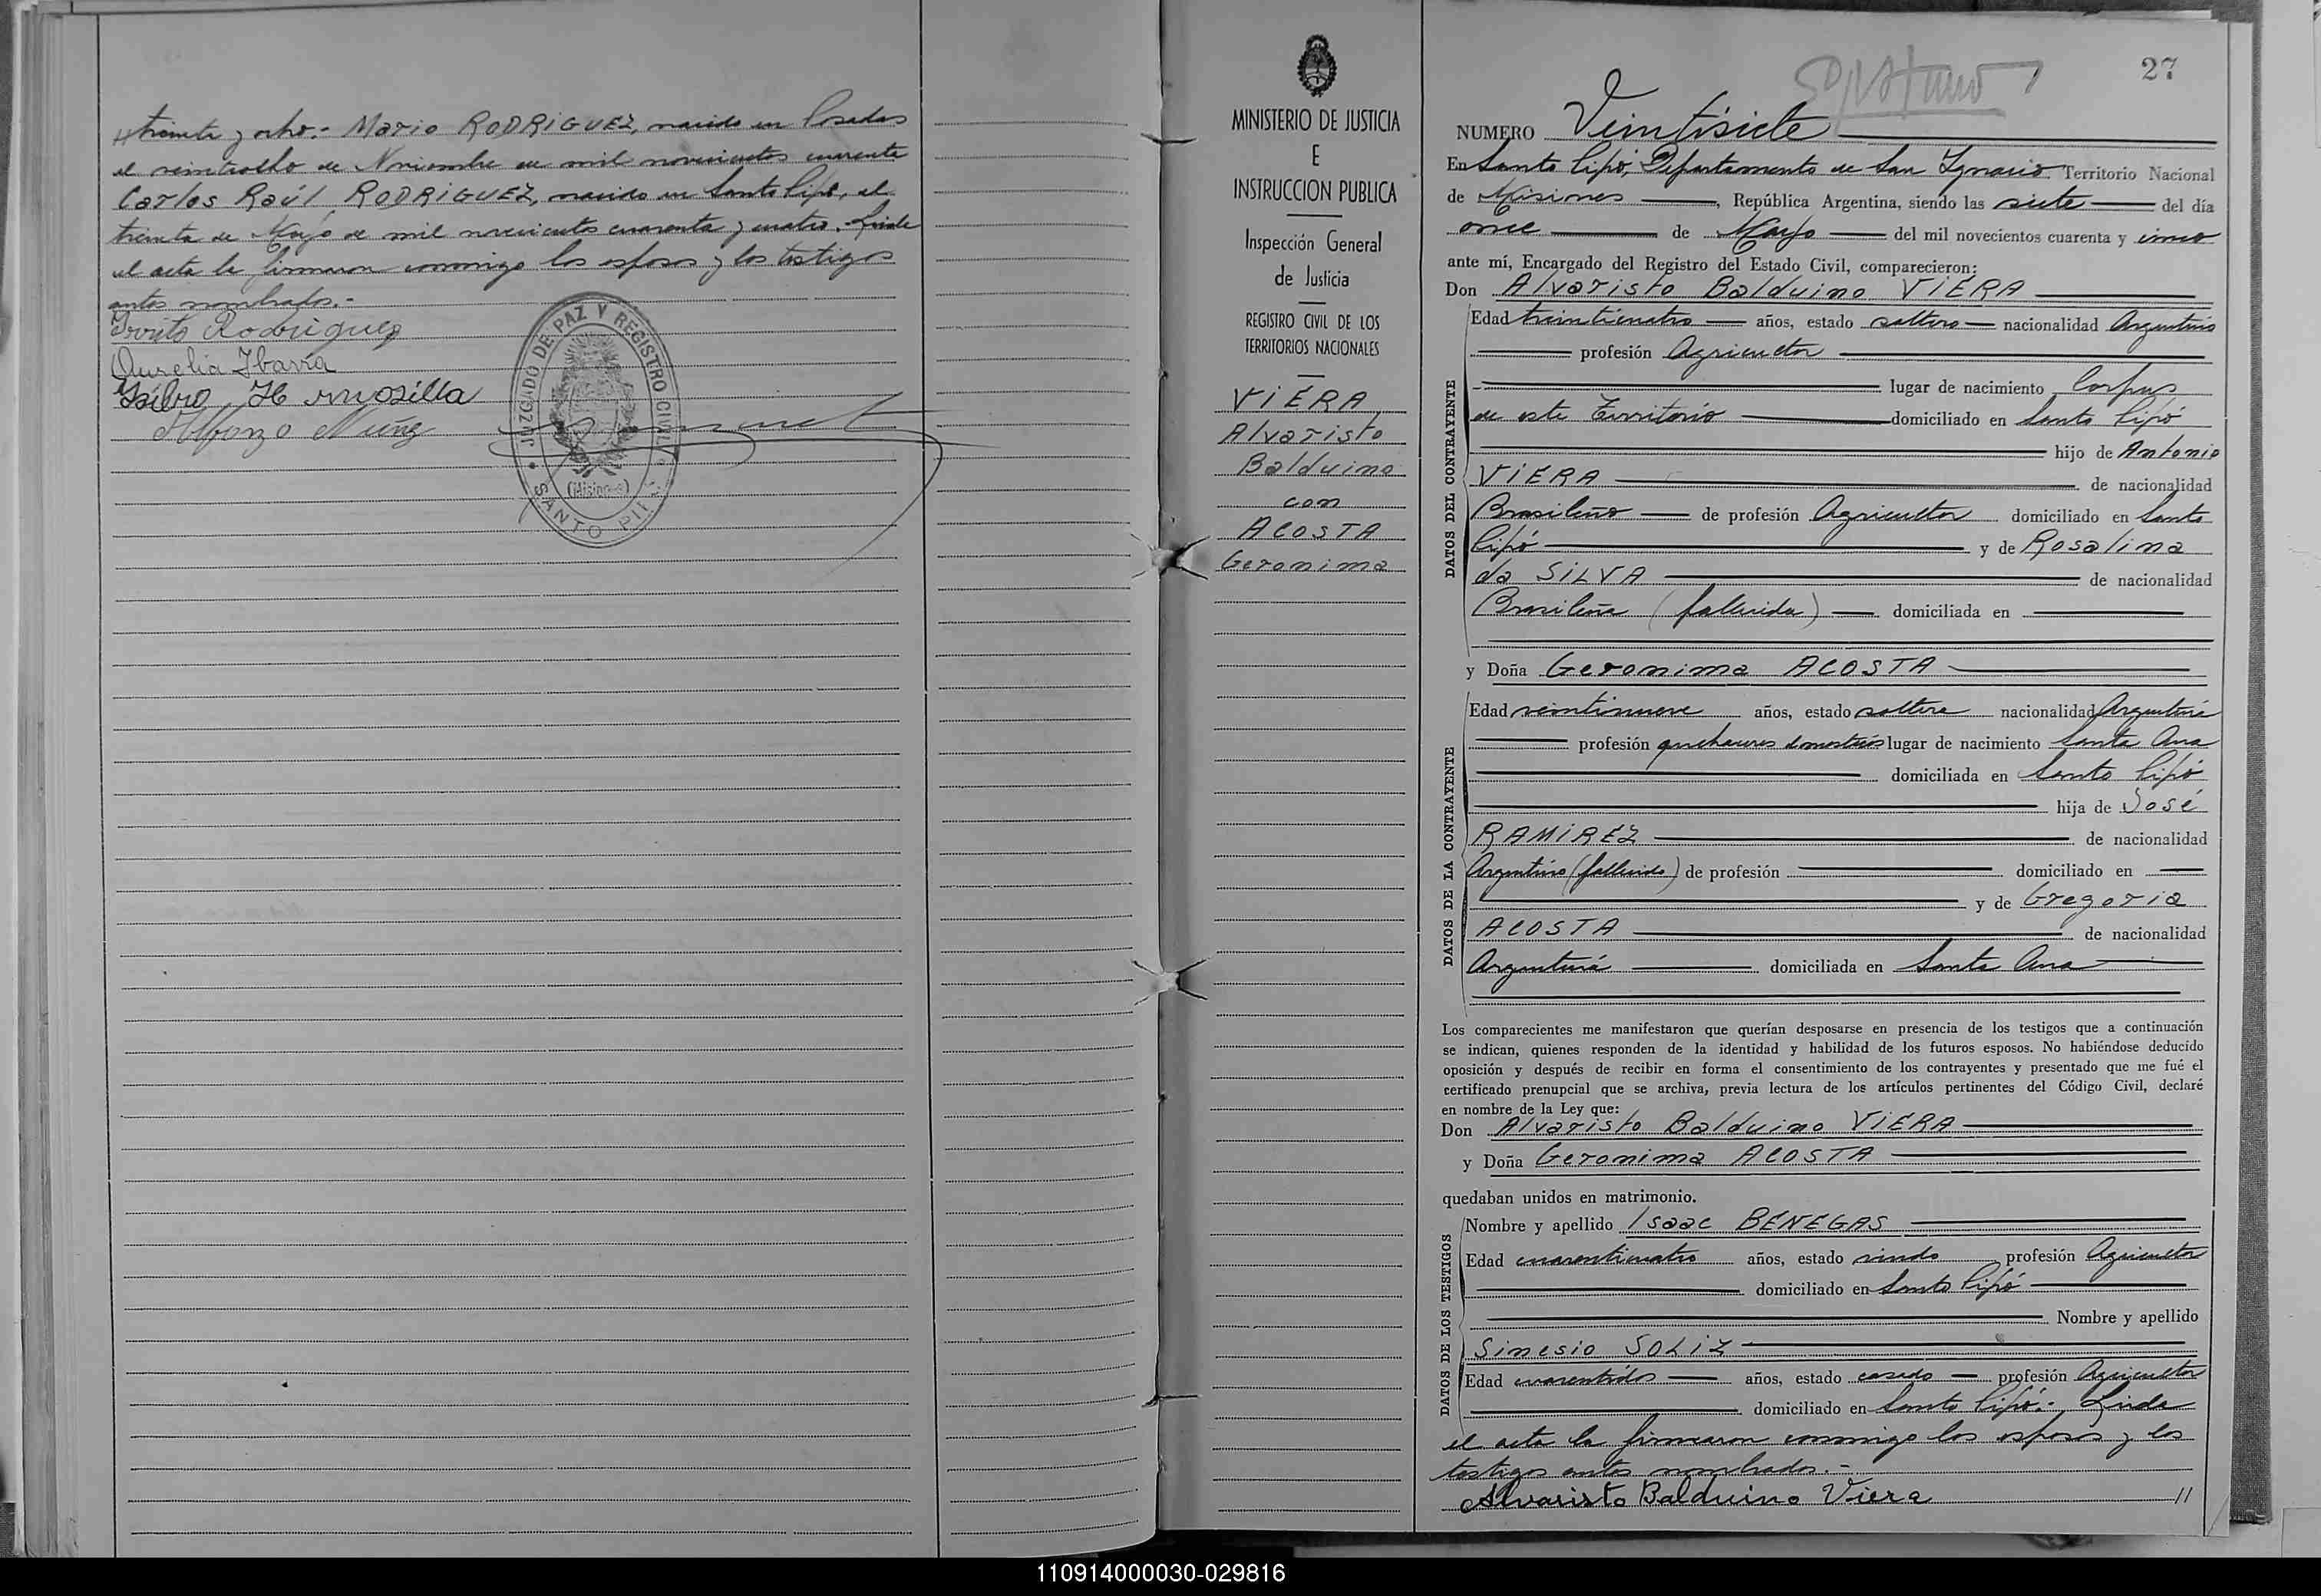 treinta y ocho.- Mario RODRIGUEZ, nacido en Posadas
el veintiocho de Noviembre de mil novecientos cuarenta
Carlos Raúl RODRIGUEZ, nacido en Santo Pipó, el
treinta de Mayo de mil novecientos cuarenta y cuatro. Leída
el acta la firmaron conmigo los esposos y los testigos
antes nombrados.-
Rodriguez
Aurelia Ibarra
Isidro Hermosilla
Alfonzo Nuñez
JUZGADO DE PAZ Y REGISTRO CIVIL
(Misiones)
SANTO PIPÓ
MINISTERIO DE JUSTICIA
E
INSTRUCCION PUBLICA
Inspección General
de Justicia
REGISTRO CIVIL DE LOS
TERRITORIOS NACIONALES
VIERA
Alvaristo
Balduino
con
ACOSTA
Geronima
27
NUMERO Veintisiete
En Santo Pipó, Departamento de San Ignacio Territorio Nacional
de Misiones, República Argentina, siendo las siete del día
once de Mayo del mil novecientos cuarenta y cinco
ante mí, Encargado del Registro del Estado Civil, comparecieron:
Don Alvaristo Balduino VIERA
DATOS DEL CONTRAYENTE
Edad treinticuatro años, estado soltero nacionalidad Argentino
profesión Agricultor
lugar de nacimiento Corpus
de este Territorio domiciliado en Santo Pipó
hijo de Antonio
VIERA de nacionalidad
Brasileño de profesión Agricultor domiciliado en Santo
Pipó y de Rosalina
da SILVA de nacionalidad
Brasileña (fallecida) domiciliada en
y Doña Geronima ACOSTA
DATOS DE LA CONTRAYENTE
Edad veintinueve años, estado soltera nacionalidad Argentina
profesión quehaceres domesticos lugar de nacimiento Santa Ana
domiciliada en Santo Pipó
hija de José
RAMIREZ de nacionalidad
Argentino (fallecido) de profesión domiciliado en
y de Gregoria
ACOSTA de nacionalidad
Argentina domiciliada en Santa Ana
Los comparecientes me manifestaron que querían desposarse en presencia de los testigos que a continuación
se indican, quienes responden de la identidad y habilidad de los futuros esposos. No habiéndose deducido
oposición y después de recibir en forma el consentimiento de los contrayentes y presentado que me fué el
certificado prenupcial que se archiva, previa lectura de los artículos pertinentes del Código Civil, declaré
en nombre de la Ley que:
Don Alvaristo Balduino VIERA
y Doña Geronima ACOSTA
quedaban unidos en matrimonio.
DATOS DE LOS TESTIGOS
Nombre y apellido Isaac BENEGAS
Edad cuarenticuatro años, estado viudo profesión Agricultor
domiciliado en Santo Pipó
Nombre y apellido
Sinesio SOLIZ
Edad cuarentidos años, estado casado profesión Agricultor
domiciliado en Santo Pipó.- Leída
el acta la firmaron conmigo los esposos y los
testigos antes nombrados.-
Alvaristo Balduino Viera //
110914000030-029816